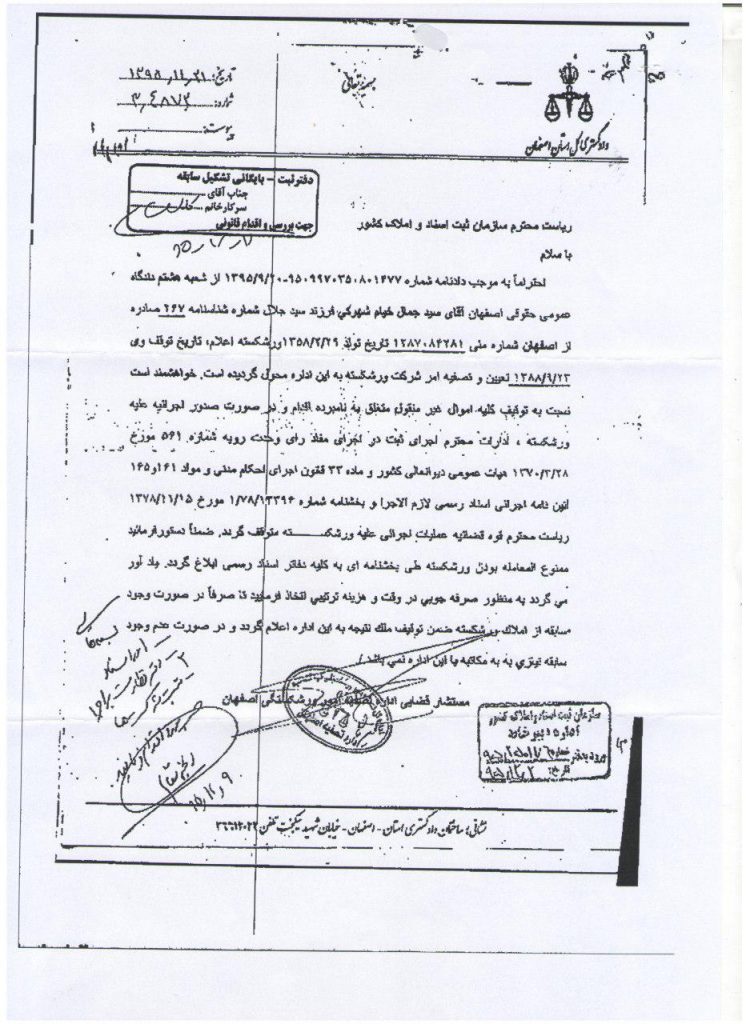 بسمه تعالی
تاریخ: ۱۳۹۵,۱۱,۲۱
شماره:
پیوست:
دادگستری کل استان اصفهان
دفتر ثبت - بایگانی تشکیل سابقه
جناب آقای
سرکار خانم
جهت بررسی و اقدام قانونی
ریاست محترم سازمان ثبت اسناد و املاک کشور
با سلام
احتراماً به موجب دادنامه شماره ۹۵۰۹۹۷۰۳۵۰۸۰۱۴۷۷-۱۳۹۵/۹/۲۰ از شعبه هشتم دادگاه
عمومی حقوقی اصفهان آقای سید جمال خیام شهرکی فرزند سید جلال شماره شناسنامه ۲۶۷ صادره
از اصفهان شماره ملی ۱۲۸۷۰۸۴۲۸۱ تاریخ تولد ۱۳۵۸/۲/۲۹ ورشکسته اعلام، تاریخ توقف وی
۱۳۸۸/۹/۲۳ تعیین و تصفیه امر شرکت ورشکسته به این اداره محول گردیده است. خواهشمند است
نسبت به توقیف کلیه اموال غیر منقول متعلق به نامبرده اقدام و در صورت صدور اجرائیه علیه
ورشکسته ، ادارات محترم اجرای ثبت در اجرای مفاد رای وحدت رویه شماره ۵۶۱ مورخ
۱۳۷۰/۳/۲۸ هیات عمومی دیوانعالی کشور و ماده ۳۳ قانون اجرای احکام مدنی و مواد ۱۶۱و۱۶۵
آئین نامه اجرائی اسناد رسمی لازم الاجرا و بخشنامه شماره ۱/۷۸/۱۳۳۹۴ مورخ ۱۳۷۸/۱۱/۱۵
ریاست محترم قوه قضائیه عملیات اجرائی علیه ورشکسته متوقف گردد. ضمناً دستورفرمائید
ممنوع المعامله بودن ورشکسته طی بخشنامه ای به کلیه دفاتر اسناد رسمی ابلاغ گردد. یاد آور
می گردد به منظور صرفه جویی در وقت و هزینه ترتیبی اتخاذ فرمایید تا صرفاً در صورت وجود
سابقه از املاک ورشکسته ضمن توقیف ملک نتیجه به این اداره اعلام گردد و در صورت عدم وجود
سابقه نیازی به به مکاتبه با این اداره نمی باشد./
مستشار قضایی اداره تصفیه امور ورشکستگی اصفهان
سازمان ثبت اسناد و املاک کشور
اداره دبیرخانه
ورود به دفتر شماره
تاریخ: ۹۵,۱۲,۲
نشانی: ساختمان دادگستری استان - اصفهان - خیابان شهید نیکبخت تلفن